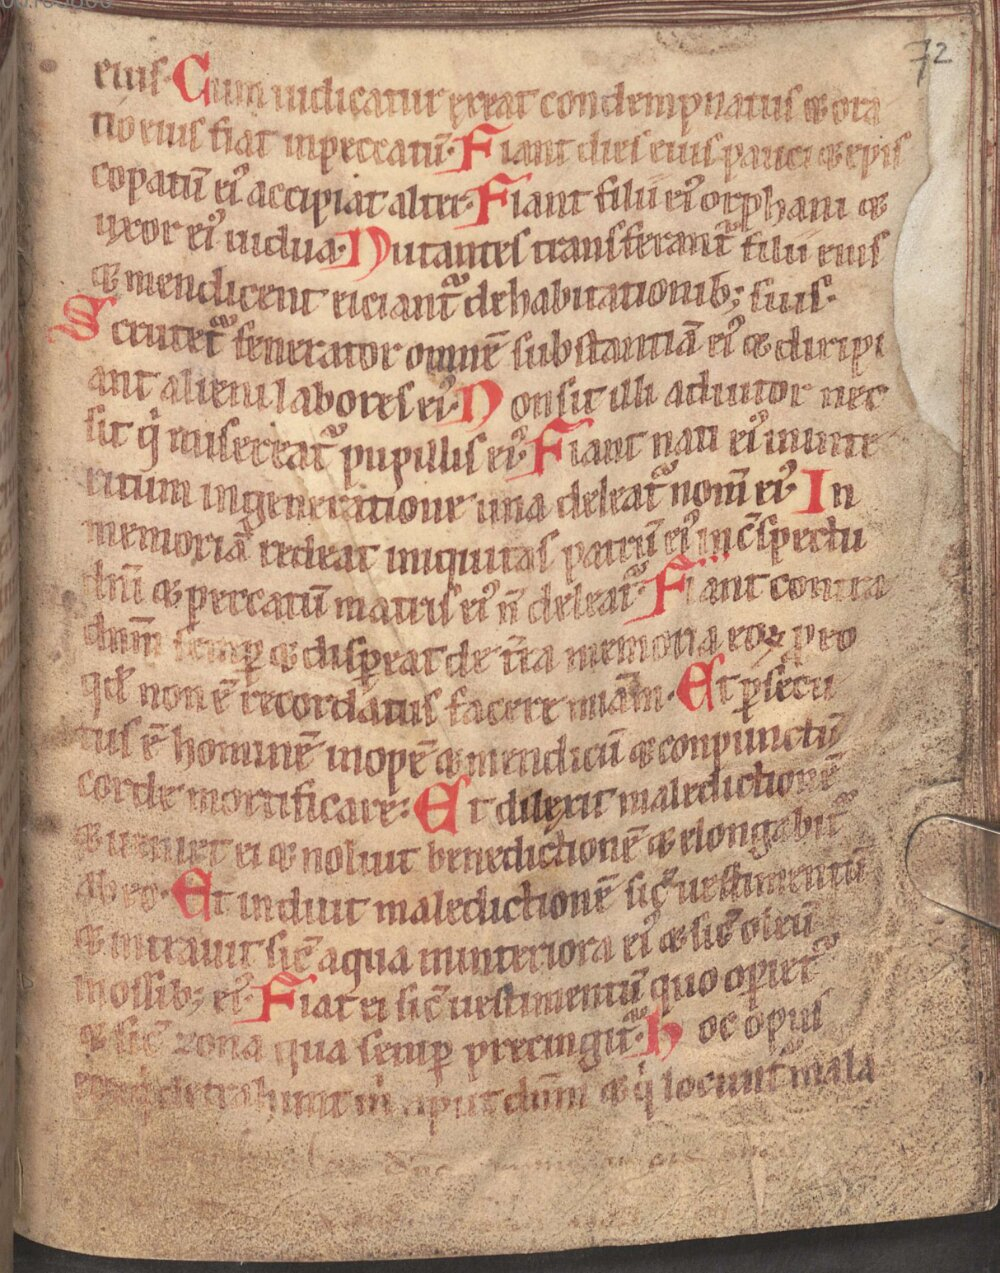 72
eius. Cum iudicatur exeat condempnatus & ora
tio eius fiat inpeccatū. Fiant dies eius pauci & epis
copatū ei᾽ accipiat alter. Fiant filii ei᾽ orphani &
uxor ei᾽ uidua. Nutantes transferant᷑ filii eius
& mendicent eiciant᷑ de habitationib; suis.
Scrutet᷑ fenerator omnē substantiā ei᾽ & diripi
ant alieni labores ei᾽. Non sit illi adiutor nec
sit q̇ misereat᷑ pupillis ei᾽. Fiant nati ei᾽ in inte
ritum in generatione una deleat᷑ nom̄ ei᾽. In
memoriā redeat iniquitas patrū ei᾽ in c̄spectu
dn̄i & peccatū matris ei᾽ n̄ deleat᷑. Fiant contra
dnm̄ semꝑ & disꝑeat de t̄ra memoria eoꝝ pro
qd̓ non ē recordatus facere miām. Et ꝑsecu
tus ē hominē inopē & mendicū & conpunctū
corde mortificare. Et dilexit maledictionē
& ueniet ei & noluit benedictionē & elongabit᷑
ab eo. Et induit maledictionē sic̄ uestimentū
& intrauit sic̄ aqua in interiora ei᾽ & sic̄ oleū
in ossib; ei᾽. Fiat ei sic̄ uestimentū quo operit᷑
& sic̄ zona qua semꝑ precingit᷑. Hoc opus
eoꝝ q̇ detrahunt m̄ aput dn̄m & q̇ locunt᷑ mala